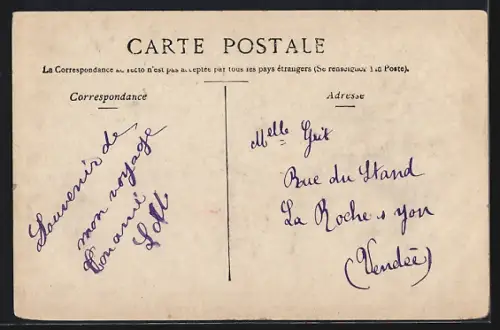 CARTE POSTALE
La Correspondance au recto n'est pas acceptée par tous les pays étrangers (Se renseigner à la Poste).
Correspondance
Souvenir de
mon voyage
Adresse
Melle Grit
Rue du Stand
La Roche s yon
(Vendée)